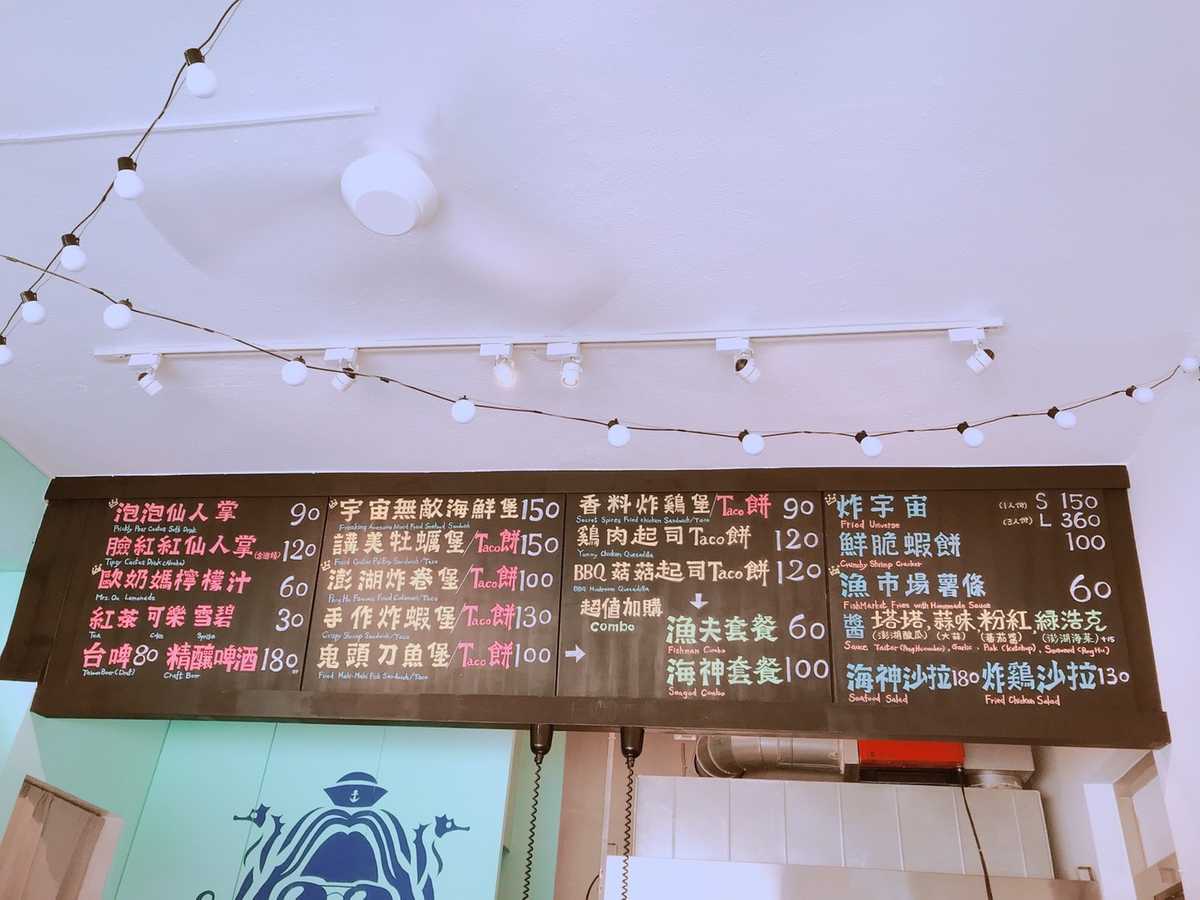 泡泡仙人掌 90
Prickly Pear Cactus Soft Drink
臉紅紅仙人掌(含酒精) 120
Tipsy Cactus Drink
歐奶媽檸檬汁 60
Mrs. Ou Lemonade
紅茶 可樂 雪碧 30
Tea Coke Sprite
台啤80 精釀啤酒180
Taiwan Beer Craft Beer
宇宙無敵海鮮堡 150
Freaking Awesome Mixed Fried Seafood Sandwich
講美牡蠣堡/Taco餅150
Sandwich/Taco
澎湖炸粿堡/Taco餅100
手作炸蝦堡/Taco餅130
Crispy Shrimp Sandwich/Taco
鬼頭刀魚堡/Taco餅100
Fried Mahi-Mahi Fish Sandwich/Taco
香料炸鷄堡/Taco餅 90
Secret Spices Fried chicken Sandwich/Taco
鷄肉起司Taco餅 120
Yummy Chicken Quesadilla
BBQ菇菇起司Taco餅 120
BBQ Mushroom Quesadilla
超值加購
combo
漁夫套餐 60
Fishman Combo
海神套餐100
Seagod Combo
炸宇宙 (1人份) S 150
Fried Universe (3人份) L 360
鮮脆蝦餅 100
Crunchy Shrimp Cracker
漁市場薯條 60
FishMarket Fries with Homemade Sauce
醬 塔塔,蒜味,粉紅,綠浩克
(澎湖酸瓜) (大蒜) (蕃茄醬) (澎湖海菜) +15
Sauce Garlic, Pink (Ketchup), Seaweed (PengHu)
海神沙拉180 炸鷄沙拉130
Seafood Salad Fried Chicken Salad